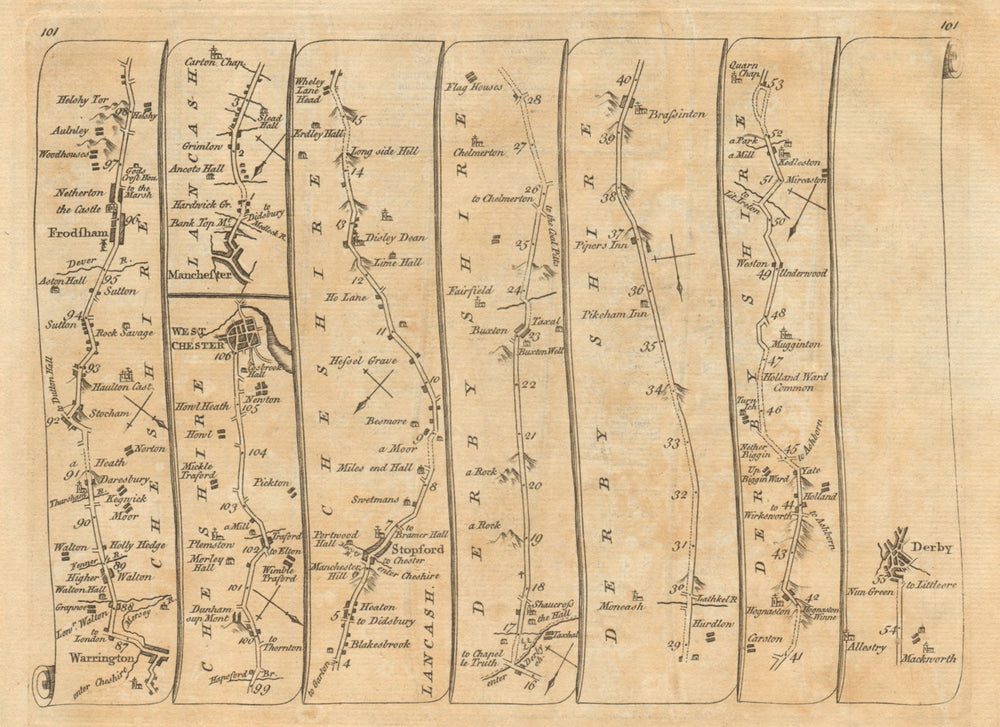 101
101
Helsby Tor
98
Helsby
Aulnley
Woodhouses
97
Gods
Croft Hou.
to the
Marsh
Netherton
the Castle
96
Frodsham
Dever R.
95
Aston Hall
Sutton
94
Sutton
Rock Savage
93
to Dutton Hall
Haulton Cast.
Stocham
92
Norton
a Heath
91
Daresbury
Thursham R.
Kegwick
Moor
90
Walton
Holly Hedge
Fenner R.
89
Higher Walton
Walton Hall
Grapnoe
88
Lowr. Walton
Mersey R.
to
London
87
Warrington
enter Cheshire
CHESHIRE
LANCASH
Carton Chap.
3
Slead
Hall
Grimlow
2
Ancots Hall
Hardwick Gr.
to
Didsbury
Bank Top
Medlock R.
Manchester
WEST
CHESTER
106
Cosbrook
Hall
Newton
105
Howl Heath
Howl
104
Mickle
Traford
Pickton
103
a Mill
Traford
Plemston
102
to Elton
Morley
Hall
Wimble
Traford
101
Dunham
sup Mont
100
to
Thornton
Hapsford Br.
99
CHESHIRE
Wheley
Lane
Head
15
Erdley Hall
Long side Hill
14
13
Disley Dean
Lime Hall
12
Ho Lane
11
Hessel Grave
10
Besmore
9
a Moor
Miles end Hall
8
Swetmans
7
to
Bramer Hall
Portwood
Hall
Stopford
to Chester
Manchester
Hill
enter Cheshire
Heaton
5
to Didsbury
Blakesbrook
4
to Gorton
CHESHIRE
LANCASH.
Flag Houses
28
27
Chelmerton
26
to Chelmerton
to the Coal Pits
25
24
Fairfield
Taxal
Buxton
23
Buxton Well
22
21
a Rock
20
a Rock
19
18
Shaucross
Hall
17
to the
Taxhal
to Chapel
le Truth
enter
Derby
sh.
16
DERBYSHIRE
40
Brassinton
39
38
37
Pipers Inn
36
Pikeham Inn
35
34
33
32
31
30
Moneash
Lathkel R
Hurdlon
29
DERBYSHIRE
Quarn
Chap.
53
52
a Park
a Mill
Kedleston
51
Mircaston
50
Weston
49
Underwood
48
Mugginton
47
Holland Ward
Common
46
Nether
Biggin
45
to Ashborn
Up
Biggin Ward
Yate
Holland
to
Wirksworth
44
to Ashborn
43
42
Hognaston
Hognaston
Winne
Carston
41
DERBYSHIRE
Derby
55
to Littleore
Nun Green
54
Allestry
Mackworth